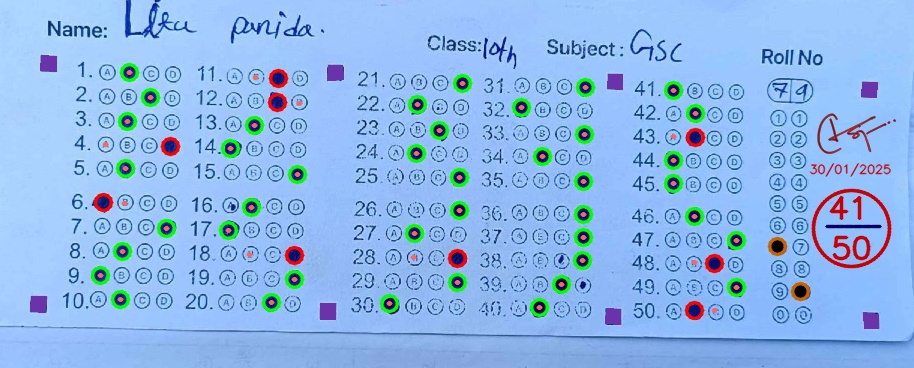 Name: panida.
Class: 10th Subject: GSC
Roll No
79
1. A C D
2. A B D
3. A C D
4. A B C
5. A C D
6. B C D
7. A B C
8. A C D
9. B C D
10. A C D
11. A B D
12. A B D
13. A C D
14. B C D
15. A B C
16. C D
17. B C D
18. A B C
19. A B C
20. A B D
21. A B C
22. A C D
23. A B D
24. A C D
25. A B C
26. A B C
27. A C D
28. A B C
29. A B C
30. B C D
31. A B C
32. B C D
33. A B C
34. A C D
35. A B C
36. A B C
37. A B C
38. A B
39. A B
40. A C D
41. B C D
42. A C D
43. A C D
44. B C D
45. B C D
46. A C D
47. A B C
48. A B D
49. A B C
50. A C D
1 1
2 2
3 3
4 4
5 5
6 6
7
8 8
9
0 0
30/01/2025
41
50